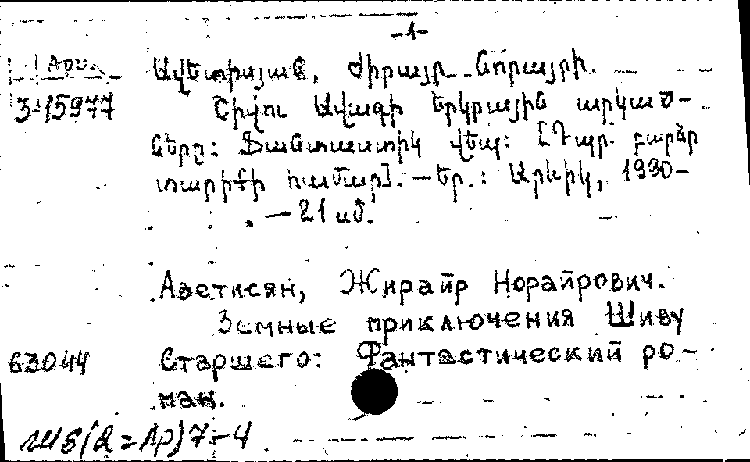 -1-
Ավետիսյան, Ժիրայր Նորայրի.
3-15977 Շիվու Ավագի երկրային արկած-
ները: Ֆանտաստիկ վեպ: [Դպր. բարձր
տարիքի համար]. — Եր.: Արևիկ, 1990-
. — 21 սմ.
Аветисян, Жирайр Норайрович.
Земные приключения Шиву
63044 Старшего: Фантастический ро-
ман.
Ш6(2=Ар)7-4